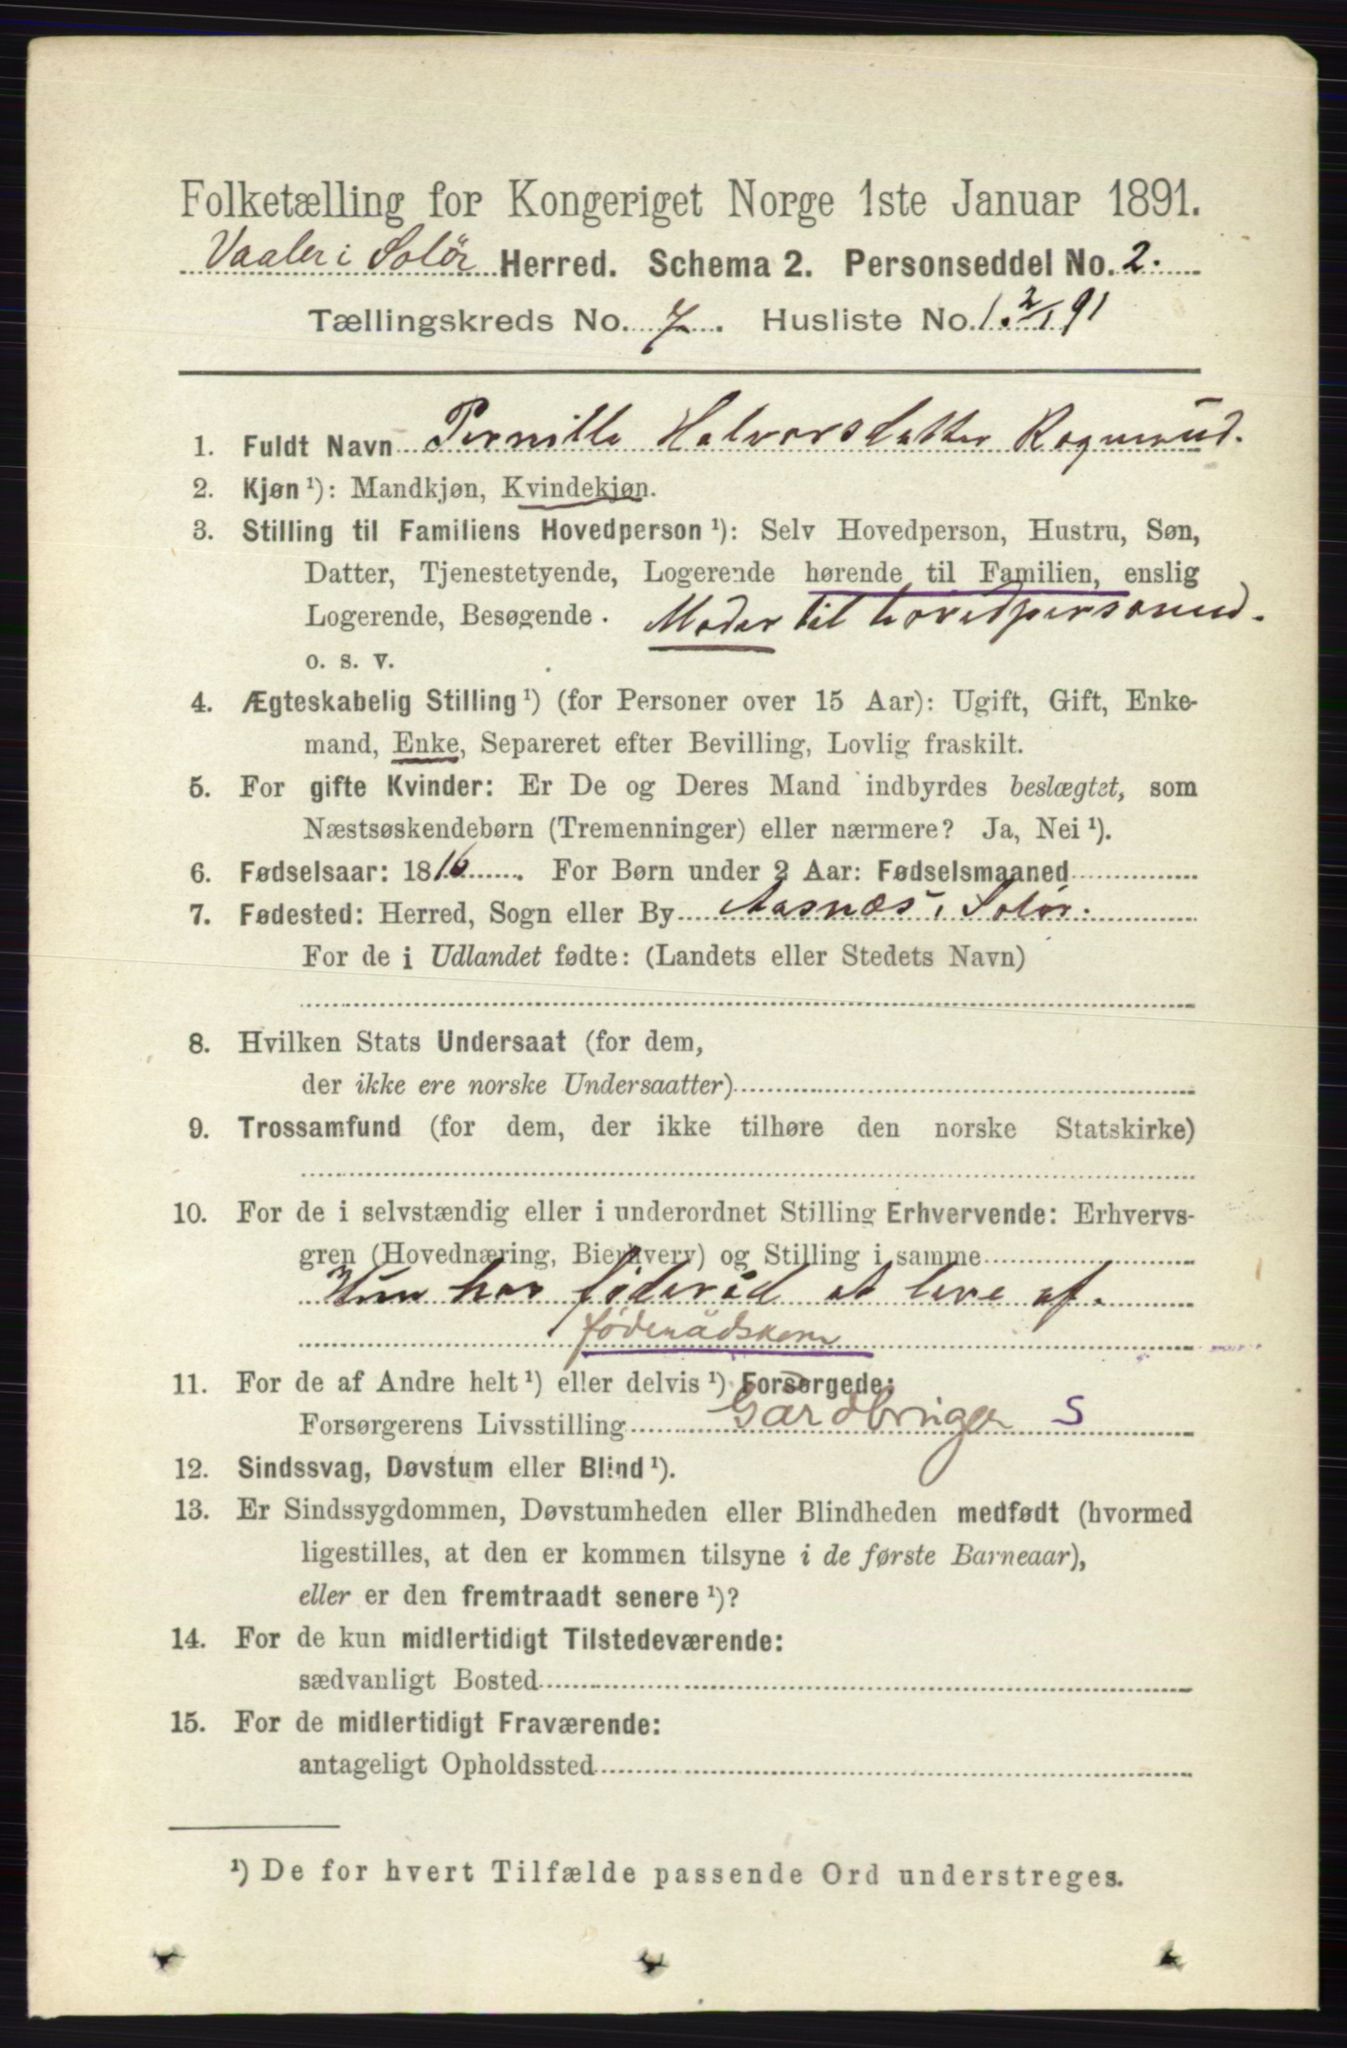 Folketælling for Kongeriget Norge 1ste Januar 1891.
Vaaler i Solør Herred. Schema 2. Personseddel No. 2.
Tællingskreds No. 7. Husliste No. 1. 2/1 91
1. Fuldt Navn Pernille Halvorsdatter Rognerud.
2. Kjøn ¹): Mandkjøn, Kvindekjøn.
3. Stilling til Familiens Hovedperson ¹): Selv Hovedperson, Hustru, Søn,
Datter, Tjenestetyende, Logerende hørende til Familien, enslig
Logerende, Besøgende. Moder til hovedpersonen.
o. s. v.
4. Ægteskabelig Stilling ¹) (for Personer over 15 Aar): Ugift, Gift, Enke-
mand, Enke, Separeret efter Bevilling, Lovlig fraskilt.
5. For gifte Kvinder: Er De og Deres Mand indbyrdes beslægtet, som
Næstsøskendebørn (Tremenninger) eller nærmere? Ja, Nei ¹).
6. Fødselsaar: 1816. For Børn under 2 Aar: Fødselsmaaned
7. Fødested: Herred, Sogn eller By Aasnæs i Solør.
For de i Udlandet fødte: (Landets eller Stedets Navn)
8. Hvilken Stats Undersaat (for dem,
der ikke ere norske Undersaatter)
9. Trossamfund (for dem, der ikke tilhøre den norske Statskirke)
10. For de i selvstændig eller i underordnet Stilling Erhvervende: Erhvervs-
gren (Hovednæring, Bierhverv) og Stilling i samme
Hun har föderåd at leve af.
födenådskone
11. For de af Andre helt ¹) eller delvis ¹) Forsørgede:
Forsørgerens Livsstilling Gardbruger S
12. Sindssvag, Døvstum eller Blind ¹).
13. Er Sindssygdommen, Døvstumheden eller Blindheden medfødt (hvormed
ligestilles, at den er kommen tilsyne i de første Barneaar),
eller er den fremtraadt senere ¹)?
14. For de kun midlertidigt Tilstedeværende:
sædvanligt Bosted
15. For de midlertidigt Fraværende:
antageligt Opholdssted
¹) De for hvert Tilfælde passende Ord understreges.